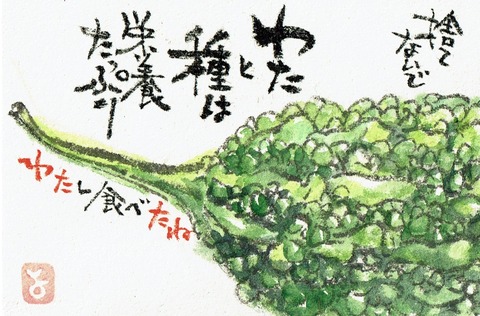 捨て
ないで
わた
と
種は
栄養
たっぷり
わたし食べたね